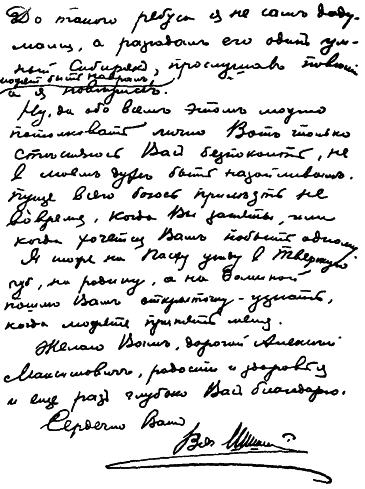 До такого ребуса я не самъ доду-
мался, а разгадалъ его одинъ ум-
ный Сибирякъ, прослушавъ
можетъ быть навралъ,
а я повторяюсь.
Ну, да обо всемъ этомъ можно
потолковать лично Вотъ только
стѣсняюсь Васъ безпокоить, не
въ моемъ духѣ быть назойливымъ.
пуще всего боюсь прилѣзть не
во время, когда Вы заняты, или
когда хочется Вамъ побыть одному
Я скоро на Пасху уѣду въ Тверскую
губ., на родину, а на
пошлю Вамъ открыточку - узнать,
когда можете принять меня.
Желаю Вамъ, дорогой Алексѣй
Максимовичъ, радости и здоровья
и еще разъ глубоко Васъ благодарю.
Сердечно Вашъ
Вяч Шишковъ